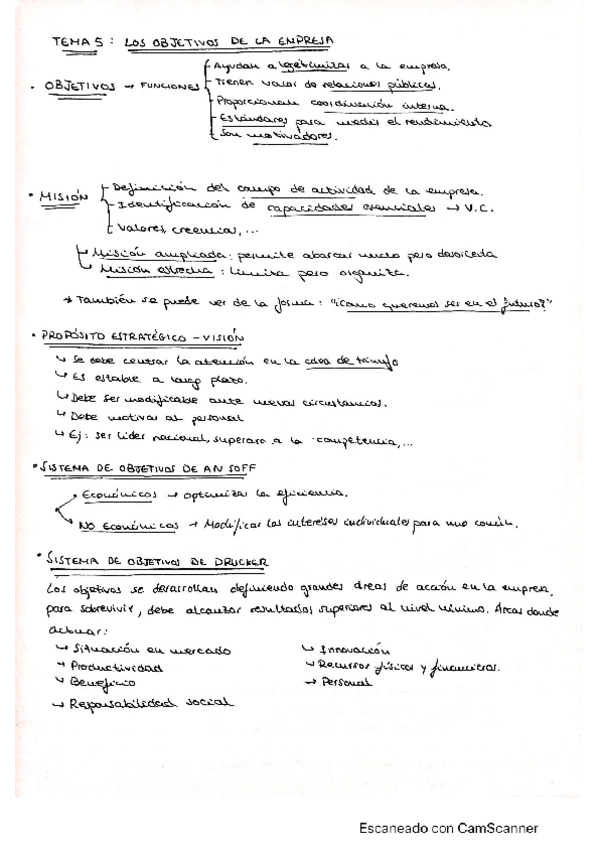 TEMA 5: LOS OBJETIVOS DE LA EMPRESA
· OBJETIVOS → FUNCIONES
Ayudan a legitimizar a la empresa.
Tienen valor de relaciones públicas.
Proporcionan coordinación interna.
Estándares para medir el rendimiento
Son motivadores.
· MISIÓN
Definición del campo de actividad de la empresa.
Identificación de capacidades esenciales → V.C.
Valores creencias, ...
Misión ampliada: permite abarcar mucho pero desorienta
Misión estrecha: limita pero organiza.
→ También se puede ver de la forma: "¿como queremos ser en el futuro?"
· PROPÓSITO ESTRATÉGICO - VISIÓN
↳ Se debe centrar la atención en la idea de triunfo
↳ Es estable a largo plazo.
↳ Debe ser modificable ante nuevas circunstancias.
↳ Debe motivar al personal
↳ Ej: ser líder nacional, superar a la competencia, ...
· SISTEMA DE OBJETIVOS DE ANSOFF
Económicos → optimizar la eficiencia.
NO Económicos → Modificar los intereses individuales para uno común.
· SISTEMA DE OBJETIVOS DE DRUCKER
Los objetivos se desarrollan definiendo grandes áreas de acción en la empresa,
para sobrevivir, debe alcanzar resultados superiores al nivel mínimo. Áreas donde
actuar:
↳ Situación en mercado
↳ Productividad
↳ Beneficio
→ Responsabilidad social
↳ Innovación
↳ Recursos físicos y financieros.
→ Personal
Escaneado con CamScanner